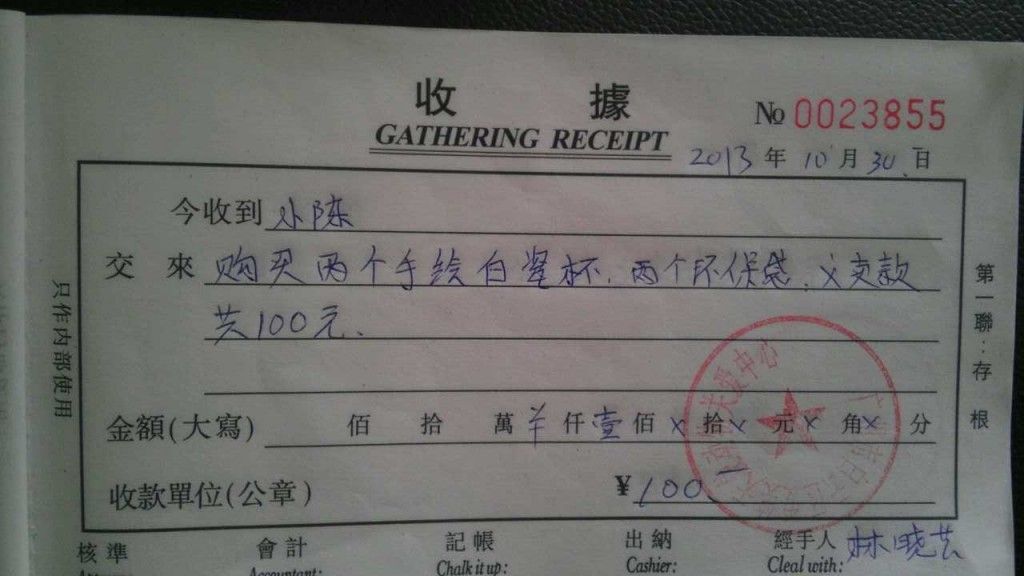 收據
GATHERING RECEIPT
№ 0023855
2013年10月30日
今收到 小陈
交來 购买两个手绘白瓷杯，两个环保袋，义卖款
共100元.
金額(大寫) 佰拾萬 仟壹佰×拾×元×角×分
收款單位(公章) ¥100
只作内部使用
第一聯:存根
关爱中心
核準 會計 記帳 出納 經手人 林晓芸
Accountant: Chalk it up: Cashier: Cleal with: